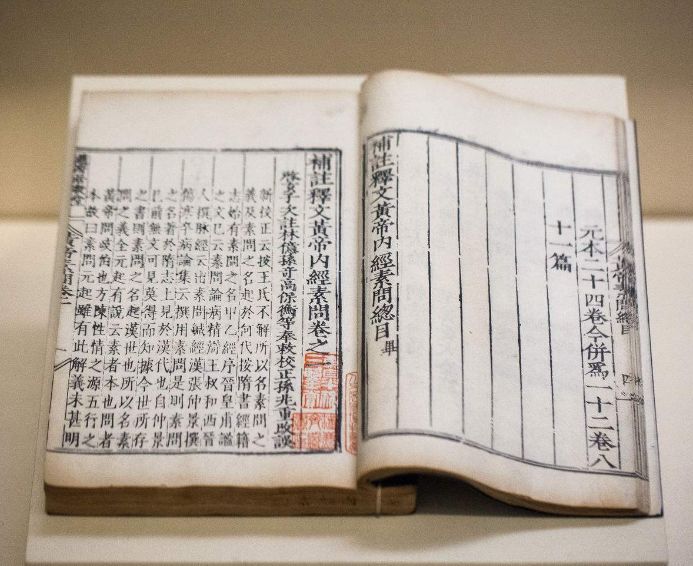 元本二十四卷今併爲一十二卷八
十一篇
補註釋文黃帝內經素問總目畢
補註釋文黃帝內經素問卷之一
啓玄子次註林億孫奇高保衡等奉敕校正孫兆重改誤
新校正云按王氏不解所以名素問之
義及素問之名起於何代按隋書經籍
志始有素問之名甲乙經序晉皇甫謐
之文已云素問論病精微王叔和西晉
人撰脉經云出素問鍼經漢張仲景撰
傷寒卒病論集云撰用素問是則素問
之名著於隋志上見於漢代也自仲景
已前無文可見莫得而知據今世所存
之書則素問之名起漢世也所以名素
問之義全元起有說云素者本也問者
黃帝問岐伯也方陳性情之源五行之
本故曰素問元起雖有此解義未甚明